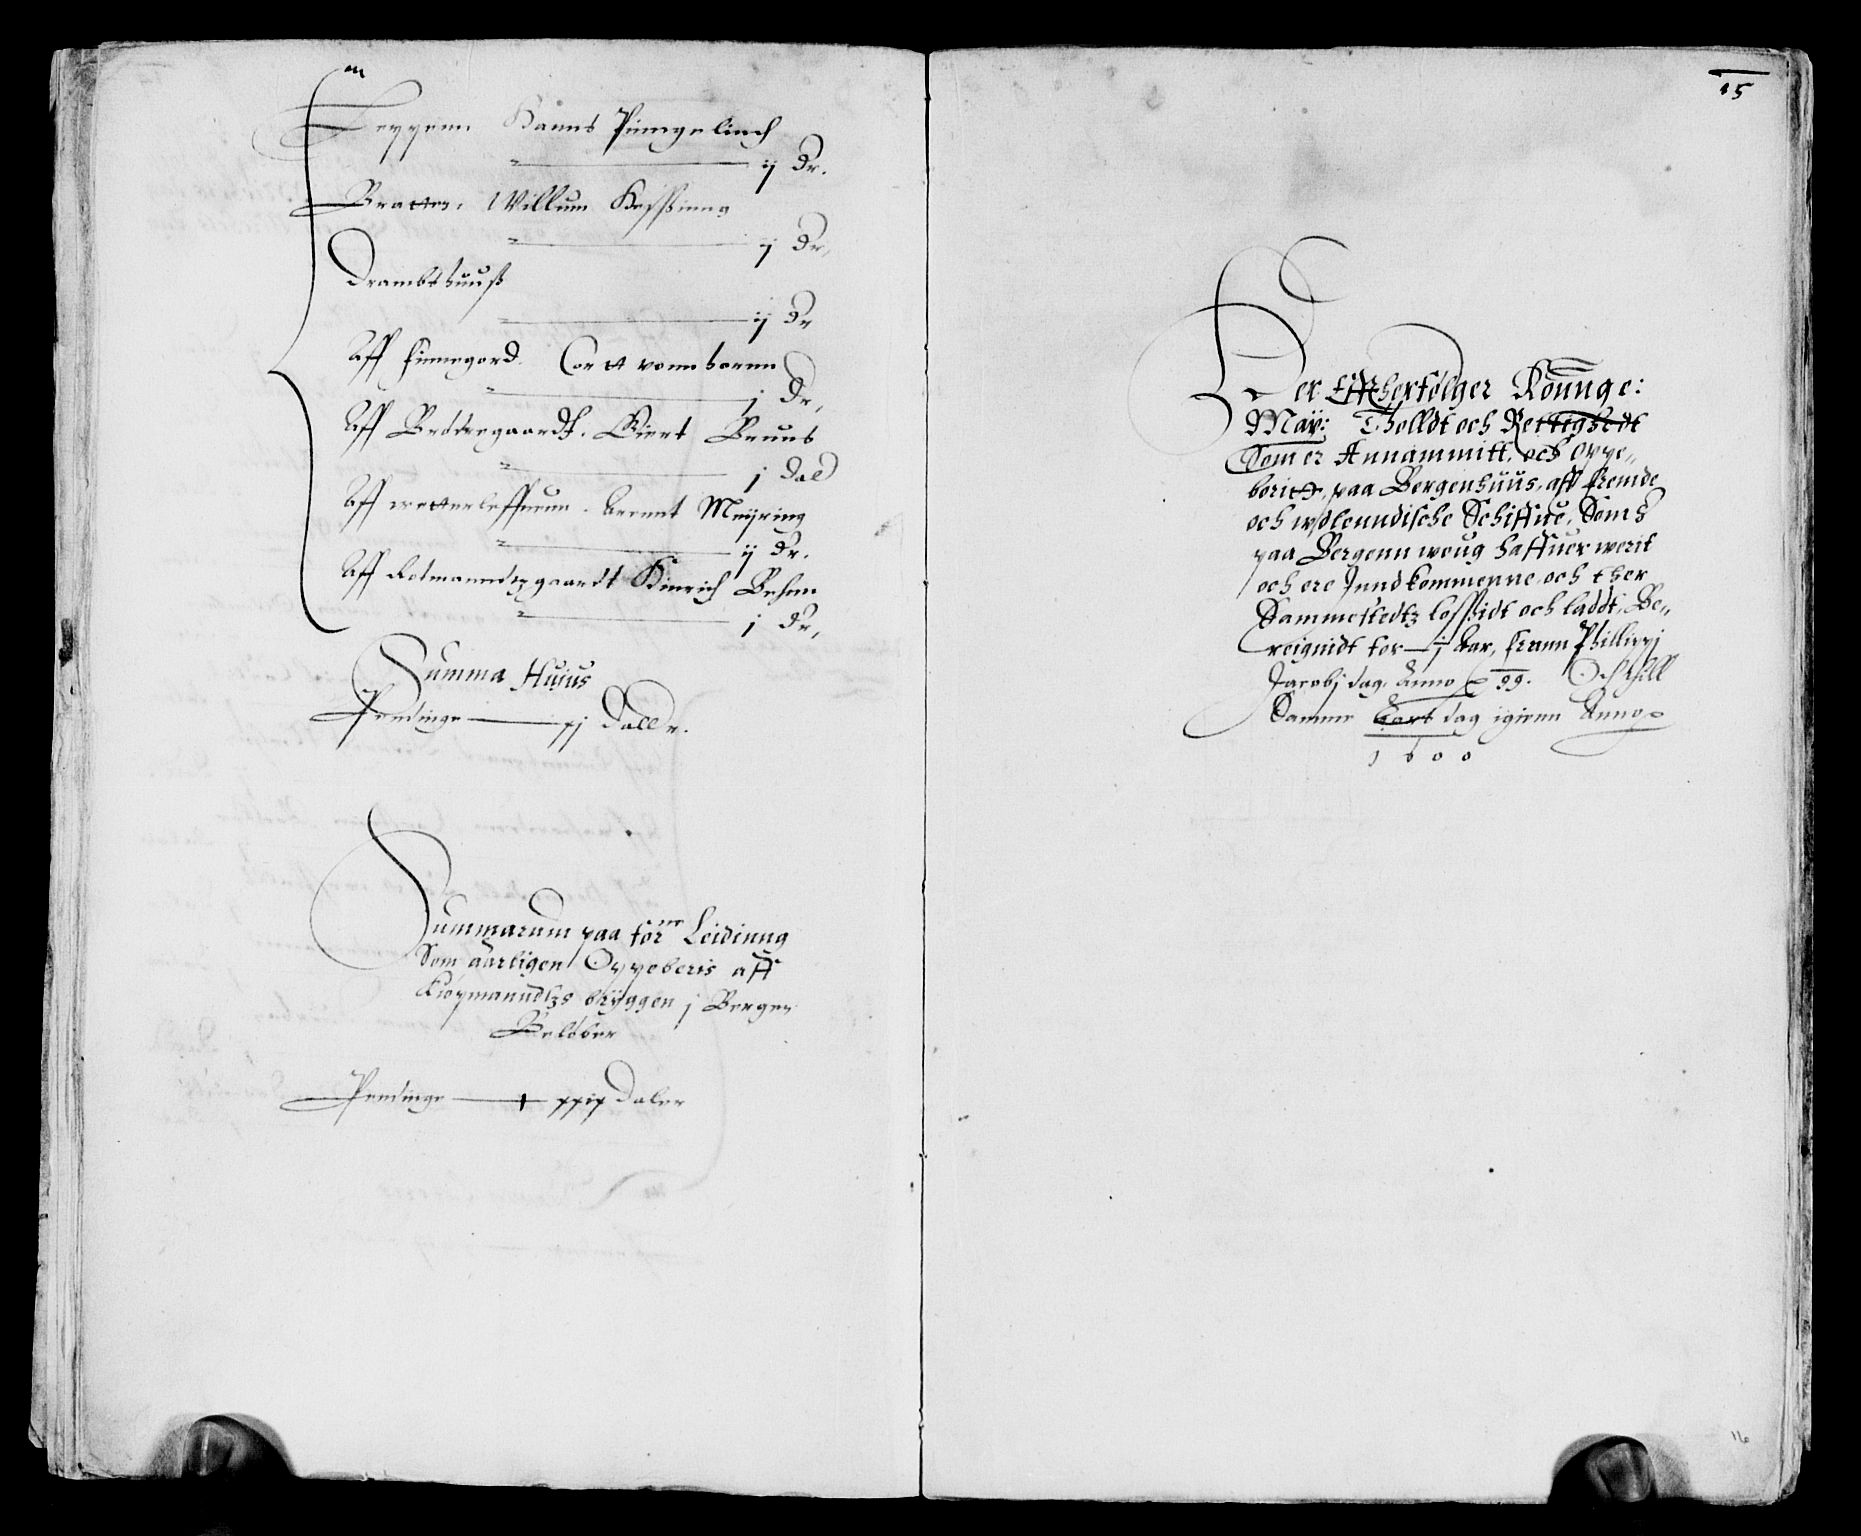 Leppenn Hanns Pinngelinch
ij Dr.
Bratten. Willum Kessinng
j Dr,
Dramshuuß
ij Dr
Aff Finnegord. Cortt vonn borenn
j Dr,
Aff Brödregaardt. Giert Bruns
j Dal
Aff wetterleffuenn. Arennt Meyring
ij Dr.
Aff Rotmanndtzgaardt Hinrich Behnn
j Dr,
Summa Huius
Pendinge xj Daller.
Summarum paa förne Leidinng
Som aarligen Oppeberis aff
Kiøpmanndtzs bryggen j Bergen
Belöber
Pendinge xxix Daler
15
Her Effterfölger Könnge:
May: Tholldt och Rettighedt
Som er Annammitt, och Oppe„
beritt, paa Bergenhuus, aff fremde
och wdlenndische Schiffue, Som
paa Bergenn woug haffuer werit
och ere Jnndkommenne och ther
Sammestedtz lossidt och laddt, Be„
reignidt for j Aar, frann Phillippj
Jacobj dag, Anno 99. Och thill
Samme dag igienn Anno
1600
16